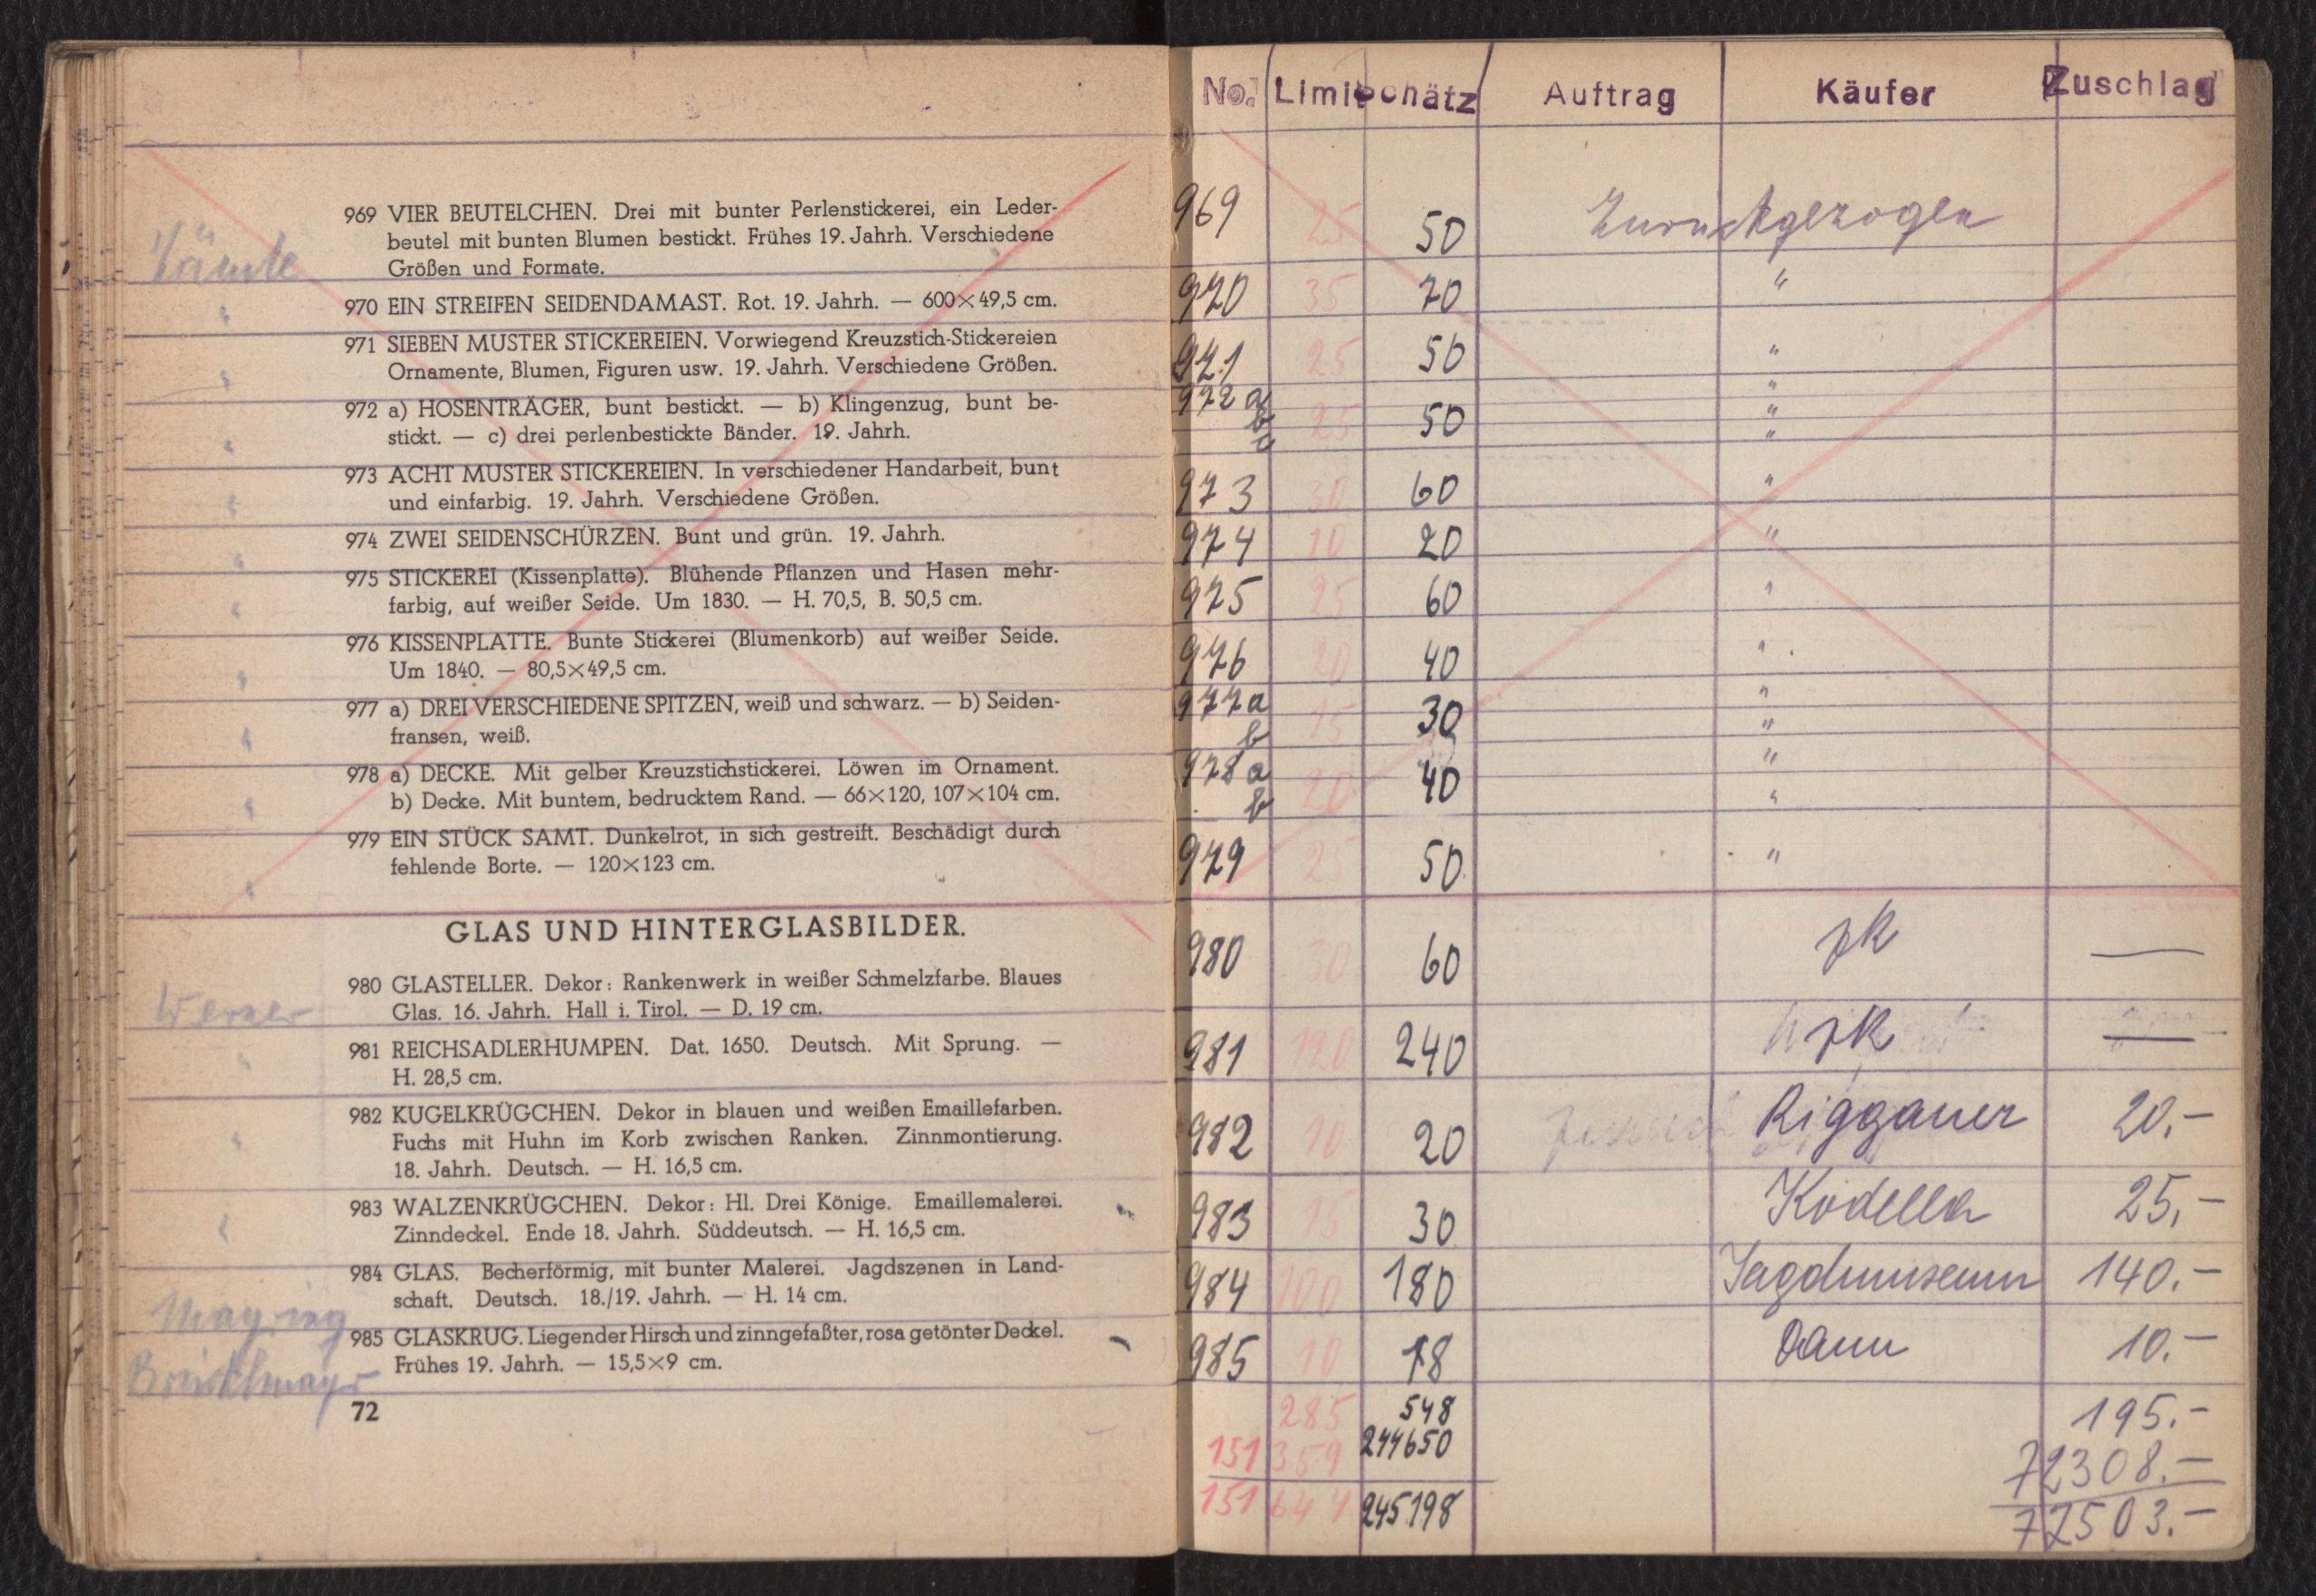 969 VIER BEUTELCHEN. Drei mit bunter Perlenstickerei, ein Leder-
beutel mit bunten Blumen bestickt. Frühes 19. Jahrh. Verschiedene
Größen und Formate.
970 EIN STREIFEN SEIDENDAMAST. Rot. 19. Jahrh. — 600×49,5 cm.
971 SIEBEN MUSTER STICKEREIEN. Vorwiegend Kreuzstich-Stickereien
Ornamente, Blumen, Figuren usw. 19. Jahrh. Verschiedene Größen.
972 a) HOSENTRÄGER, bunt bestickt. — b) Klingenzug, bunt be-
stickt. — c) drei perlenbestickte Bänder. 19. Jahrh.
973 ACHT MUSTER STICKEREIEN. In verschiedener Handarbeit, bunt
und einfarbig. 19. Jahrh. Verschiedene Größen.
974 ZWEI SEIDENSCHÜRZEN. Bunt und grün. 19. Jahrh.
975 STICKEREI (Kissenplatte). Blühende Pflanzen und Hasen mehr-
farbig, auf weißer Seide. Um 1830. — H. 70,5, B. 50,5 cm.
976 KISSENPLATTE. Bunte Stickerei (Blumenkorb) auf weißer Seide.
Um 1840. — 80,5×49,5 cm.
977 a) DREI VERSCHIEDENE SPITZEN, weiß und schwarz. — b) Seiden-
fransen, weiß.
978 a) DECKE. Mit gelber Kreuzstichstickerei. Löwen im Ornament.
b) Decke. Mit buntem, bedrucktem Rand. — 66×120, 107×104 cm.
979 EIN STÜCK SAMT. Dunkelrot, in sich gestreift. Beschädigt durch
fehlende Borte. — 120×123 cm.
GLAS UND HINTERGLASBILDER.
980 GLASTELLER. Dekor: Rankenwerk in weißer Schmelzfarbe. Blaues
Werner Glas. 16. Jahrh. Hall i. Tirol. — D. 19 cm.
981 REICHSADLERHUMPEN. Dat. 1650. Deutsch. Mit Sprung. —
" H. 28,5 cm.
982 KUGELKRÜGCHEN. Dekor in blauen und weißen Emaillefarben.
" Fuchs mit Huhn im Korb zwischen Ranken. Zinnmontierung.
18. Jahrh. Deutsch. — H. 16,5 cm.
983 WALZENKRÜGCHEN. Dekor: Hl. Drei Könige. Emaillemalerei.
" Zinndeckel. Ende 18. Jahrh. Süddeutsch. — H. 16,5 cm.
984 GLAS. Becherförmig, mit bunter Malerei. Jagdszenen in Land-
schaft. Deutsch. 18./19. Jahrh. — H. 14 cm.
985 GLASKRUG. Liegender Hirsch und zinngefaßter, rosa getönter Deckel.
Frühes 19. Jahrh. — 15,5×9 cm.
72
No. Limit Schätz Auftrag Käufer Zuschlag
969 25 50 Zurückgezogen
970 35 70 "
971 25 50 "
972 a "
b 25 50 "
c "
973 30 60 "
974 10 20 "
975 25 60 "
976 20 40 "
977 a 15 30 "
b "
978 a 20 40 "
b "
979 25 50 "
980 30 60 zk —
981 120 240 zk —
982 10 20 Riggauer 20.-
983 15 30 Kodella 25,-
984 100 180 Jagdmuseum 140.-
985 10 18 Dann 10.-
285 548 195.-
151 359 244650 72308.-
151 644 245198 72503.-